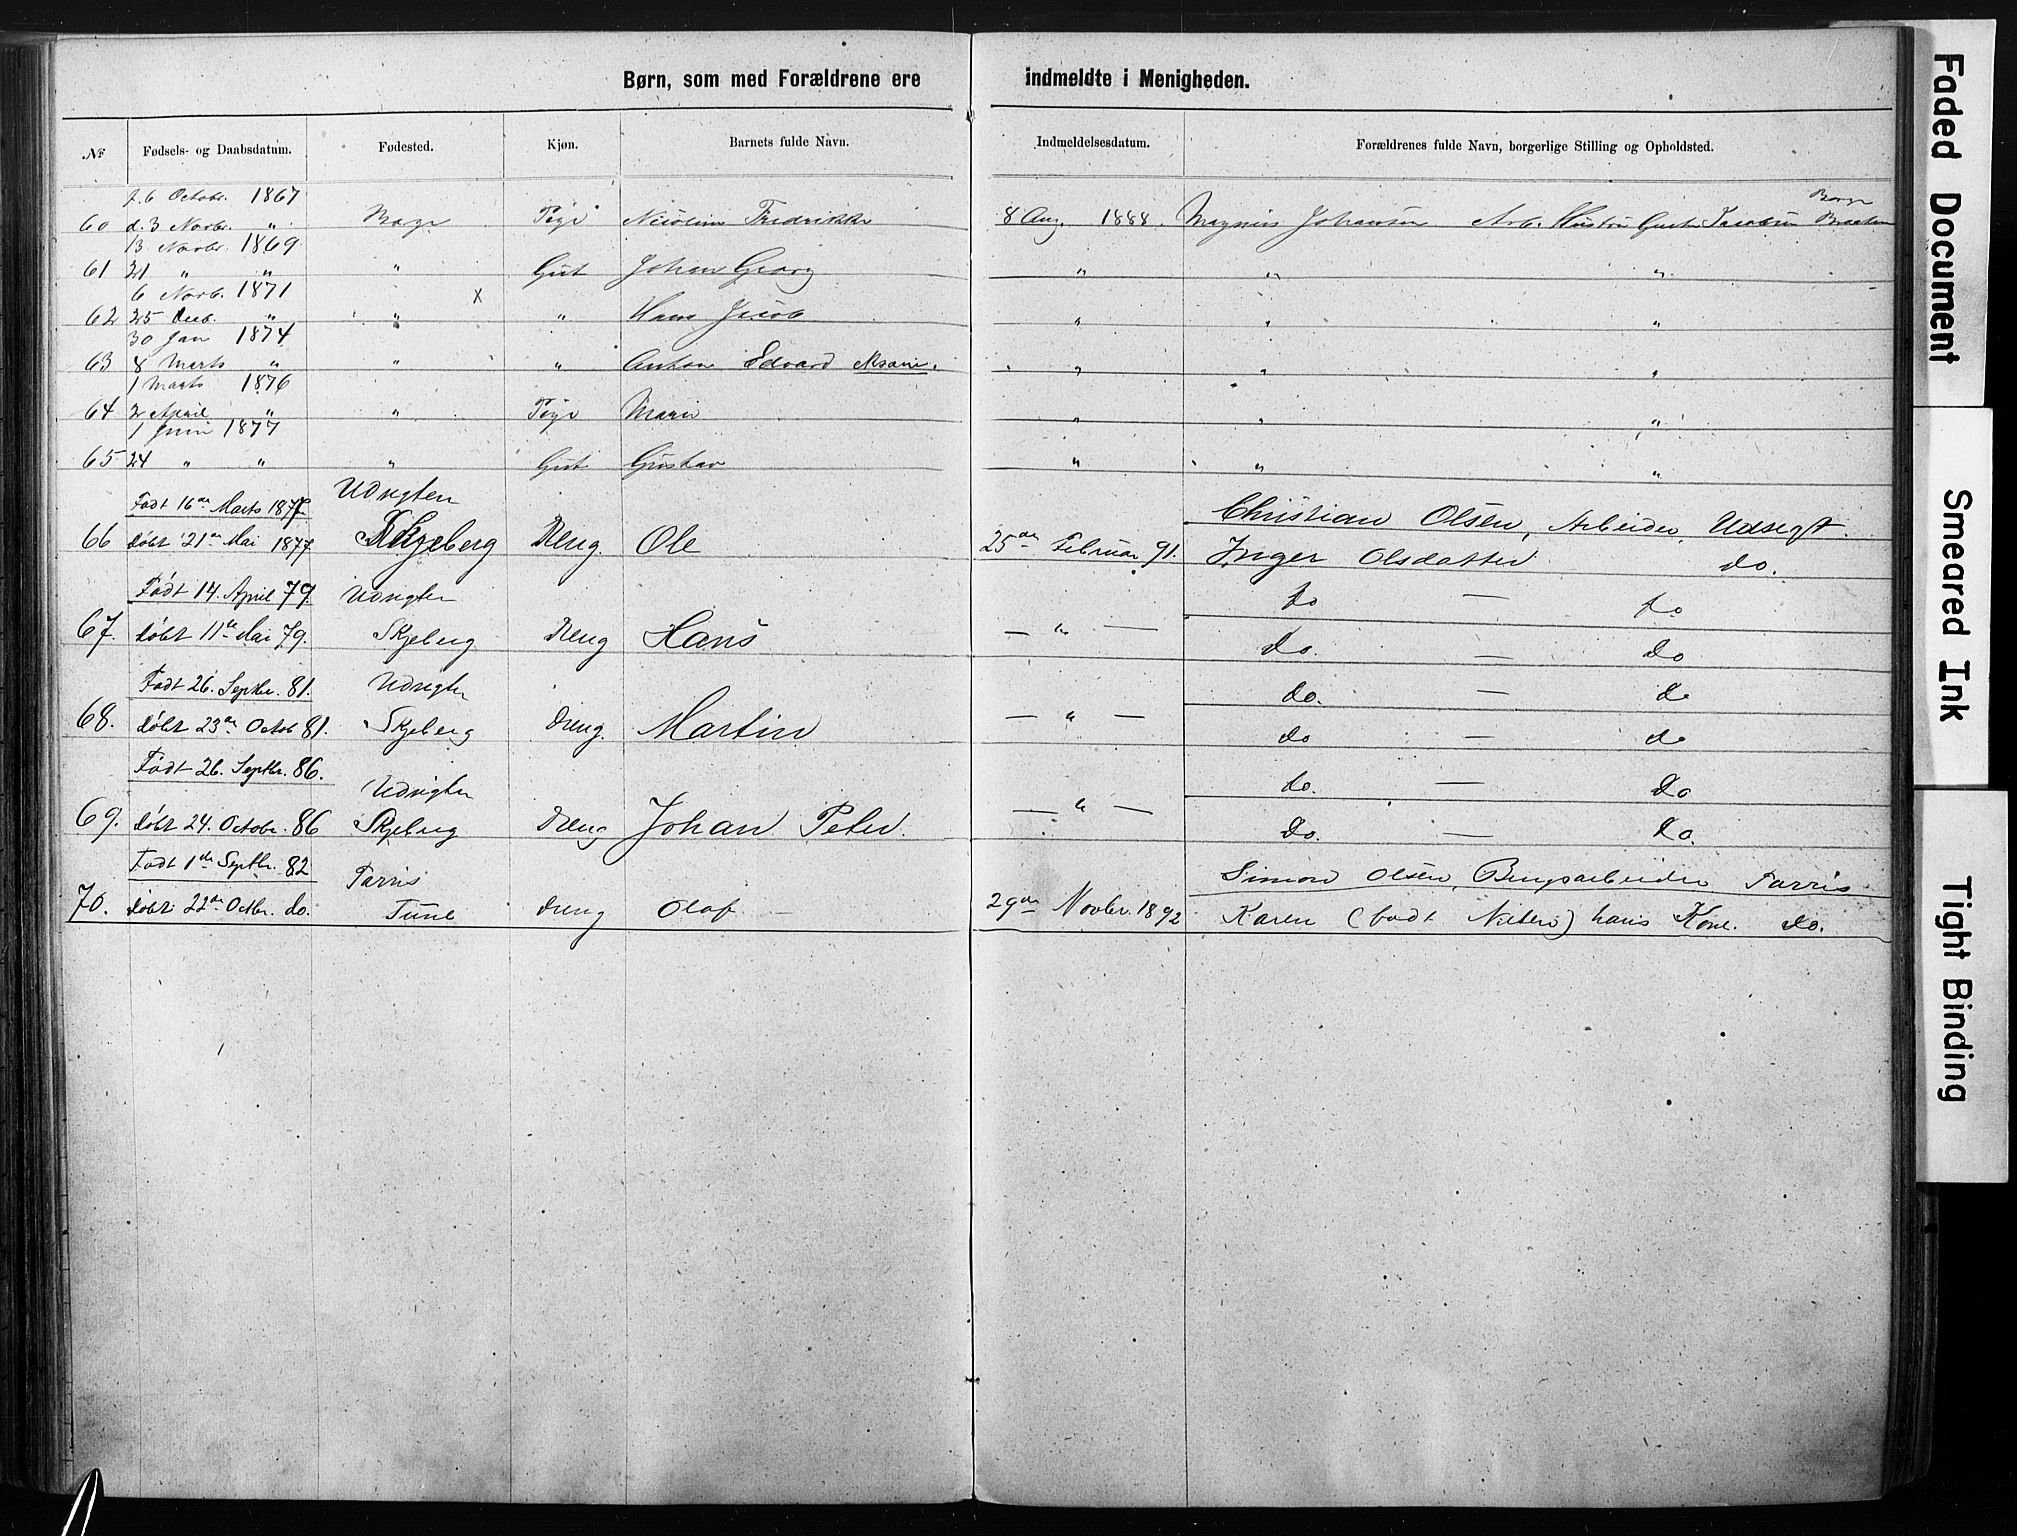 Børn, som med Forældrene ere indmeldte i Menigheden.
№ Fødsels- og Daabsdatum. Fødested. Kjøn. Barnets fulde Navn. Indmeldelsesdatum. Forældrenes fulde Navn, borgerlige Stilling og Opholdsted.
f. 6 Octobr. 1867 Borge
60 d. 3 Novbr. " Borge Pige Nicoline Fredrikke 8 Aug. 1888. Magnus Johansen Arb. Hustru Jacobsen Braaten
13 Novbr. 1869
61 21 " " " Gut Johan Georg " " "
6 Novb. 1871 x
62 25 Deb. " " " Hans Jacob " " "
30 Jan 1874
63 8 Marts " " " Anton Edvard " " "
1 Marts 1876
64 2 April " " Pige Marie " " "
1 Juni 1877
65 24 " " " Gut Gustav " " "
Født 16de Marts 1877. Udsigten Christian Olsen, Arbeider, Udsigt.
66 døbt 21de Mai 1877 Skjeberg Dreng. Ole 25de Februar 91. Inger Olsdatter do.
Født 14. April 79. Udsigten do — do
67. døbt 11te Mai 79. Skjeberg Dreng Hans — " — do. — do
Født 26. Septbr. 81. Udsigten do. — do
68. døbt 23de Octob 81. Skjeberg dreng. Martin — " — do — do
Født 26. Septbr. 86. Udsigten do. — do
69. døbt 24. Octobr. 86 Skjeberg dreng Johan Peter. — " — do. — do.
Født 1de Septbr. 82 Tarris Simon Olsen, Brugsarbeider Tarris
70. døbt 22de Octbr. do. Tune dreng Olaf — 29de Novbr. 1892 Karen (født Nilsen) hans Kone. do.
Faded Document
Smeared Ink
Tight Binding